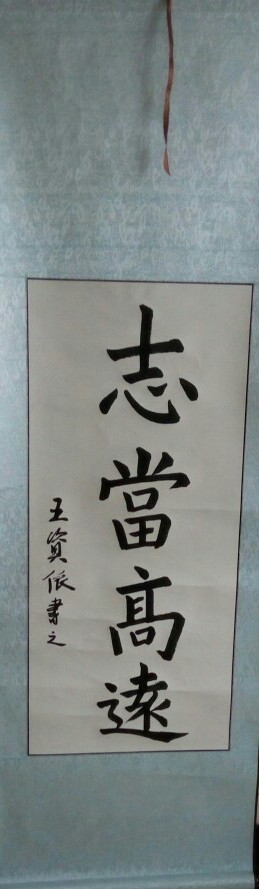 志當髙遠
王資依書之